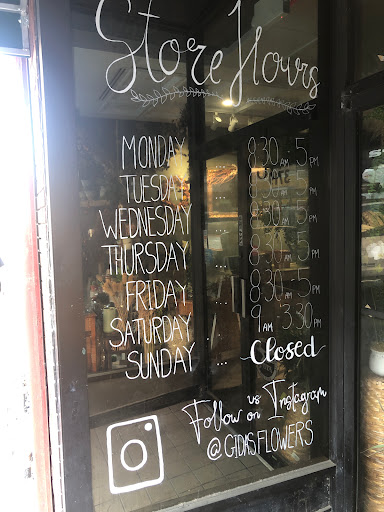 Store Hours
MONDAY 8:30 AM - 5 PM
TUESDAY 8:30 AM - 5 PM
WEDNESDAY 8:30 AM - 5 PM
THURSDAY 8:30 AM - 5 PM
FRIDAY ... 8:30 AM - 5 PM
SATURDAY ... 9 AM - 3:30 PM
SUNDAY ... Closed
Follow us on Instagram
@GIDAS FLOWERS